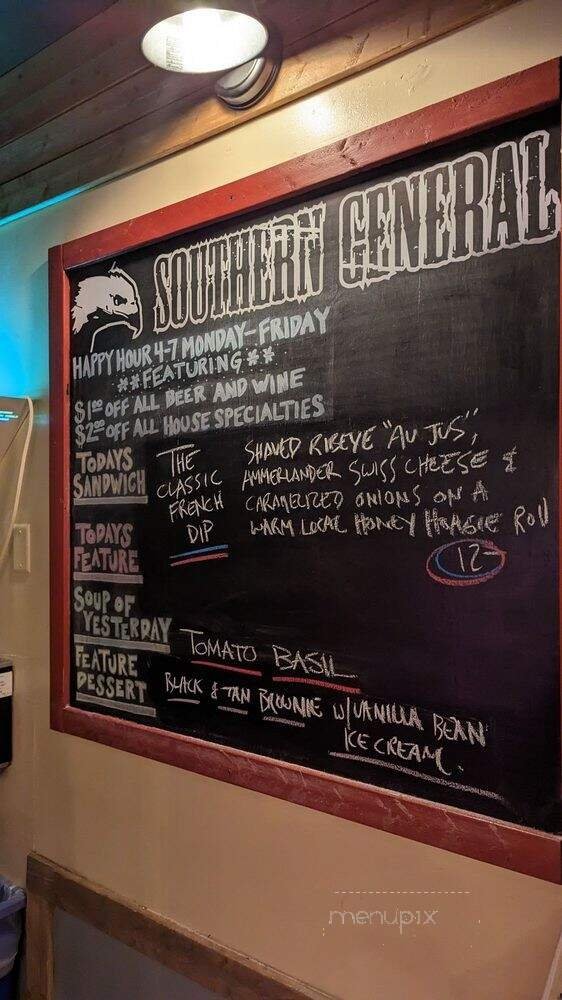 SOUTHERN GENERAL
HAPPY HOUR 4-7 MONDAY-FRIDAY
**FEATURING**
$1.00 OFF ALL BEER AND WINE
$2.00 OFF ALL HOUSE SPECIALTIES
TODAYS
SANDWICH
THE
CLASSIC
FRENCH
DIP
SHAVED RIBEYE "AU JUS",
AMMERLANDER SWISS CHEESE &
CARAMELIZED ONIONS ON A
WARM LOCAL HONEY HOAGIE ROLL
12-
TODAYS
FEATURE
SOUP OF
YESTERDAY
TOMATO BASIL
FEATURE
DESSERT
BLACK & TAN BROWNIE W/VANILLA BEAN
ICE CREAM.
menupix